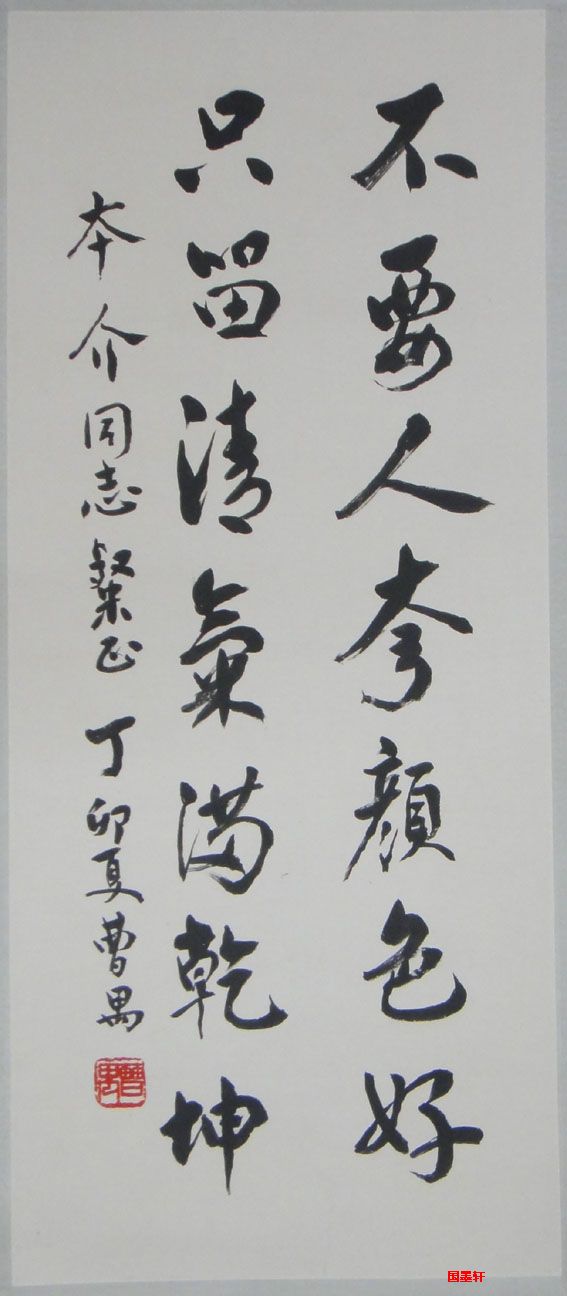 不要人夸顔色好
只留清氣满乾坤
本介同志粲正 丁卯夏曹禺
曹禺
国墨轩